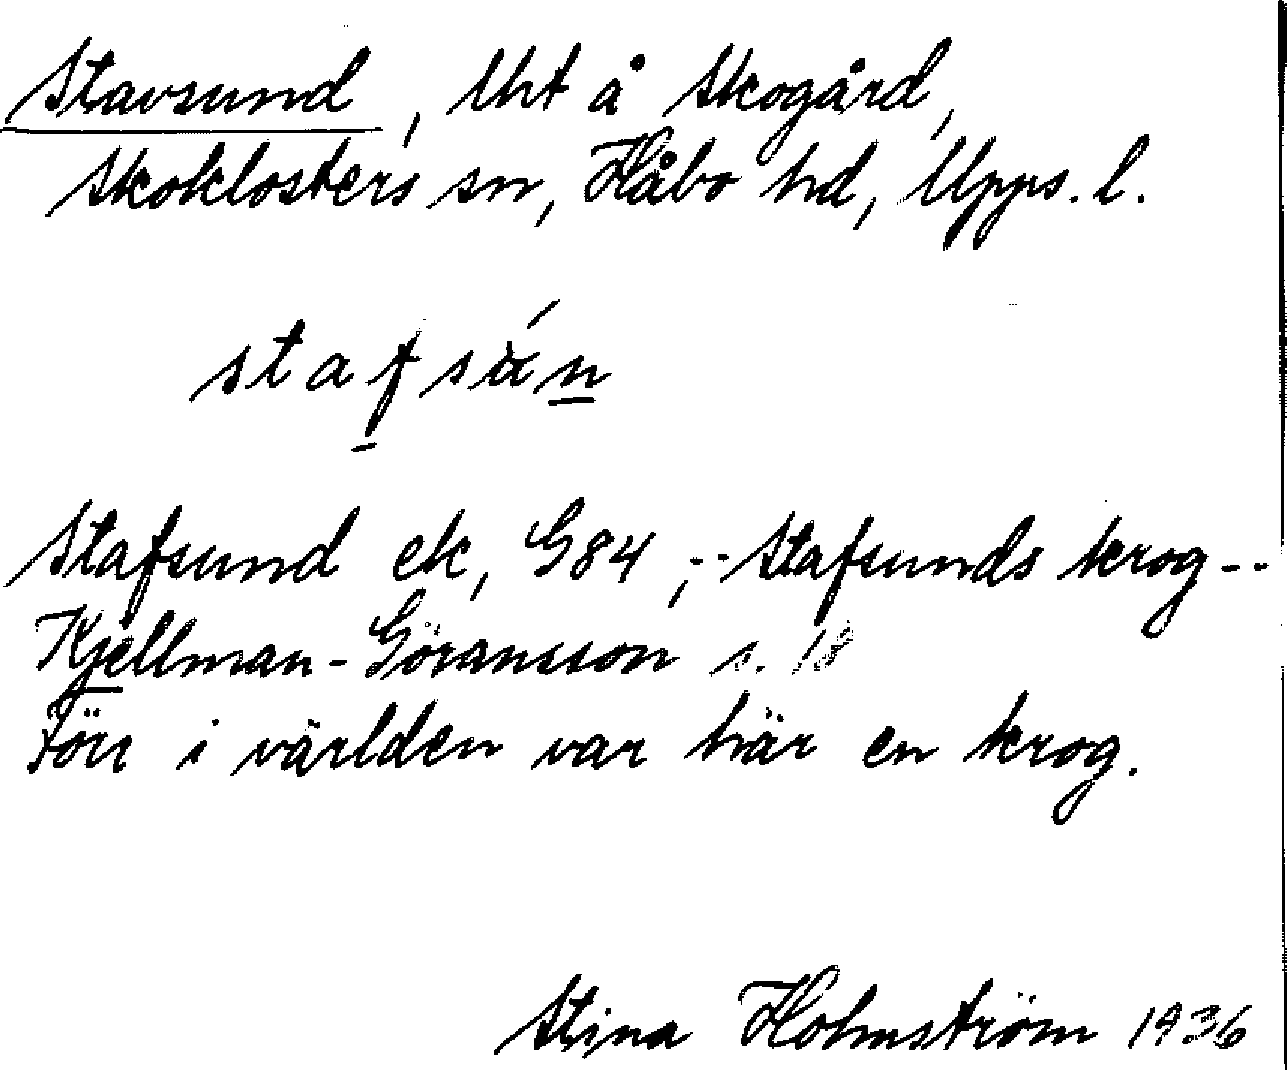 Stavsund, lht å Skogård,
Skoklosters sn, Håbo hd, Upps. l.
Stafsund ek, G84, -- Stafsunds krog --
Kjellman-Göransson s. 18
Förr i världen var här en krog.
Stina Holmström 1936